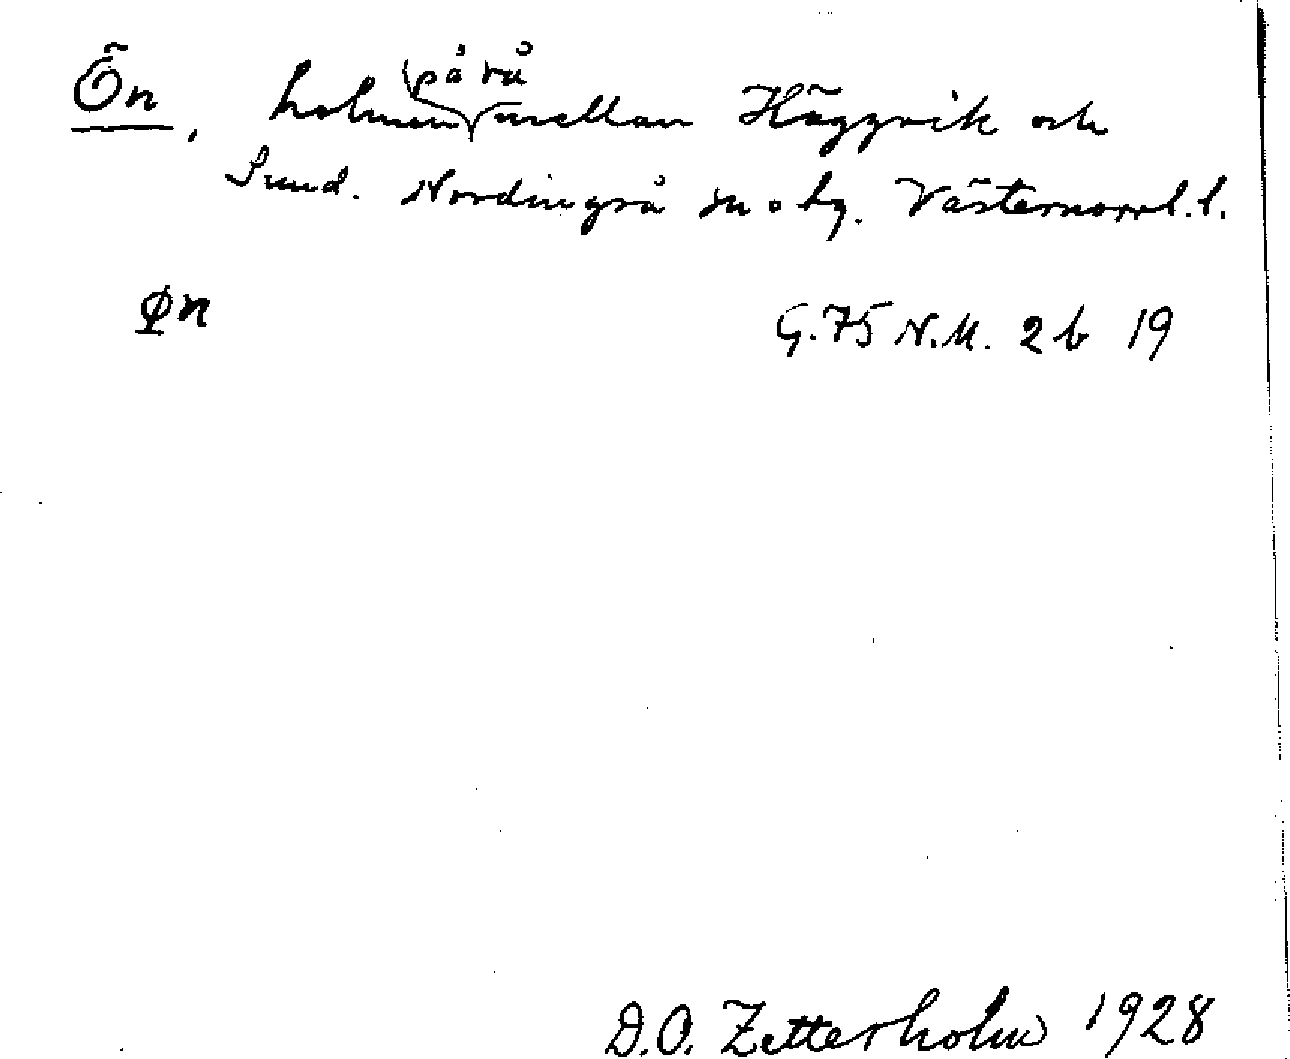 Ön, holmen på rå mellan Häggvik och
Sund. Nordingrå sn o hg. Västernorrl. l.
øn
G. 75 N.M. 2 b 19
D.O. Zetterholm 1928